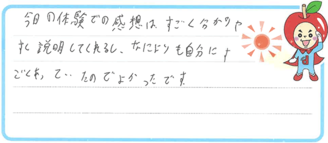 今日の体験での感想は、すごく分かりや
すし説明してくれるし、なにより自分にす
ごくあっていたのでよかったです。